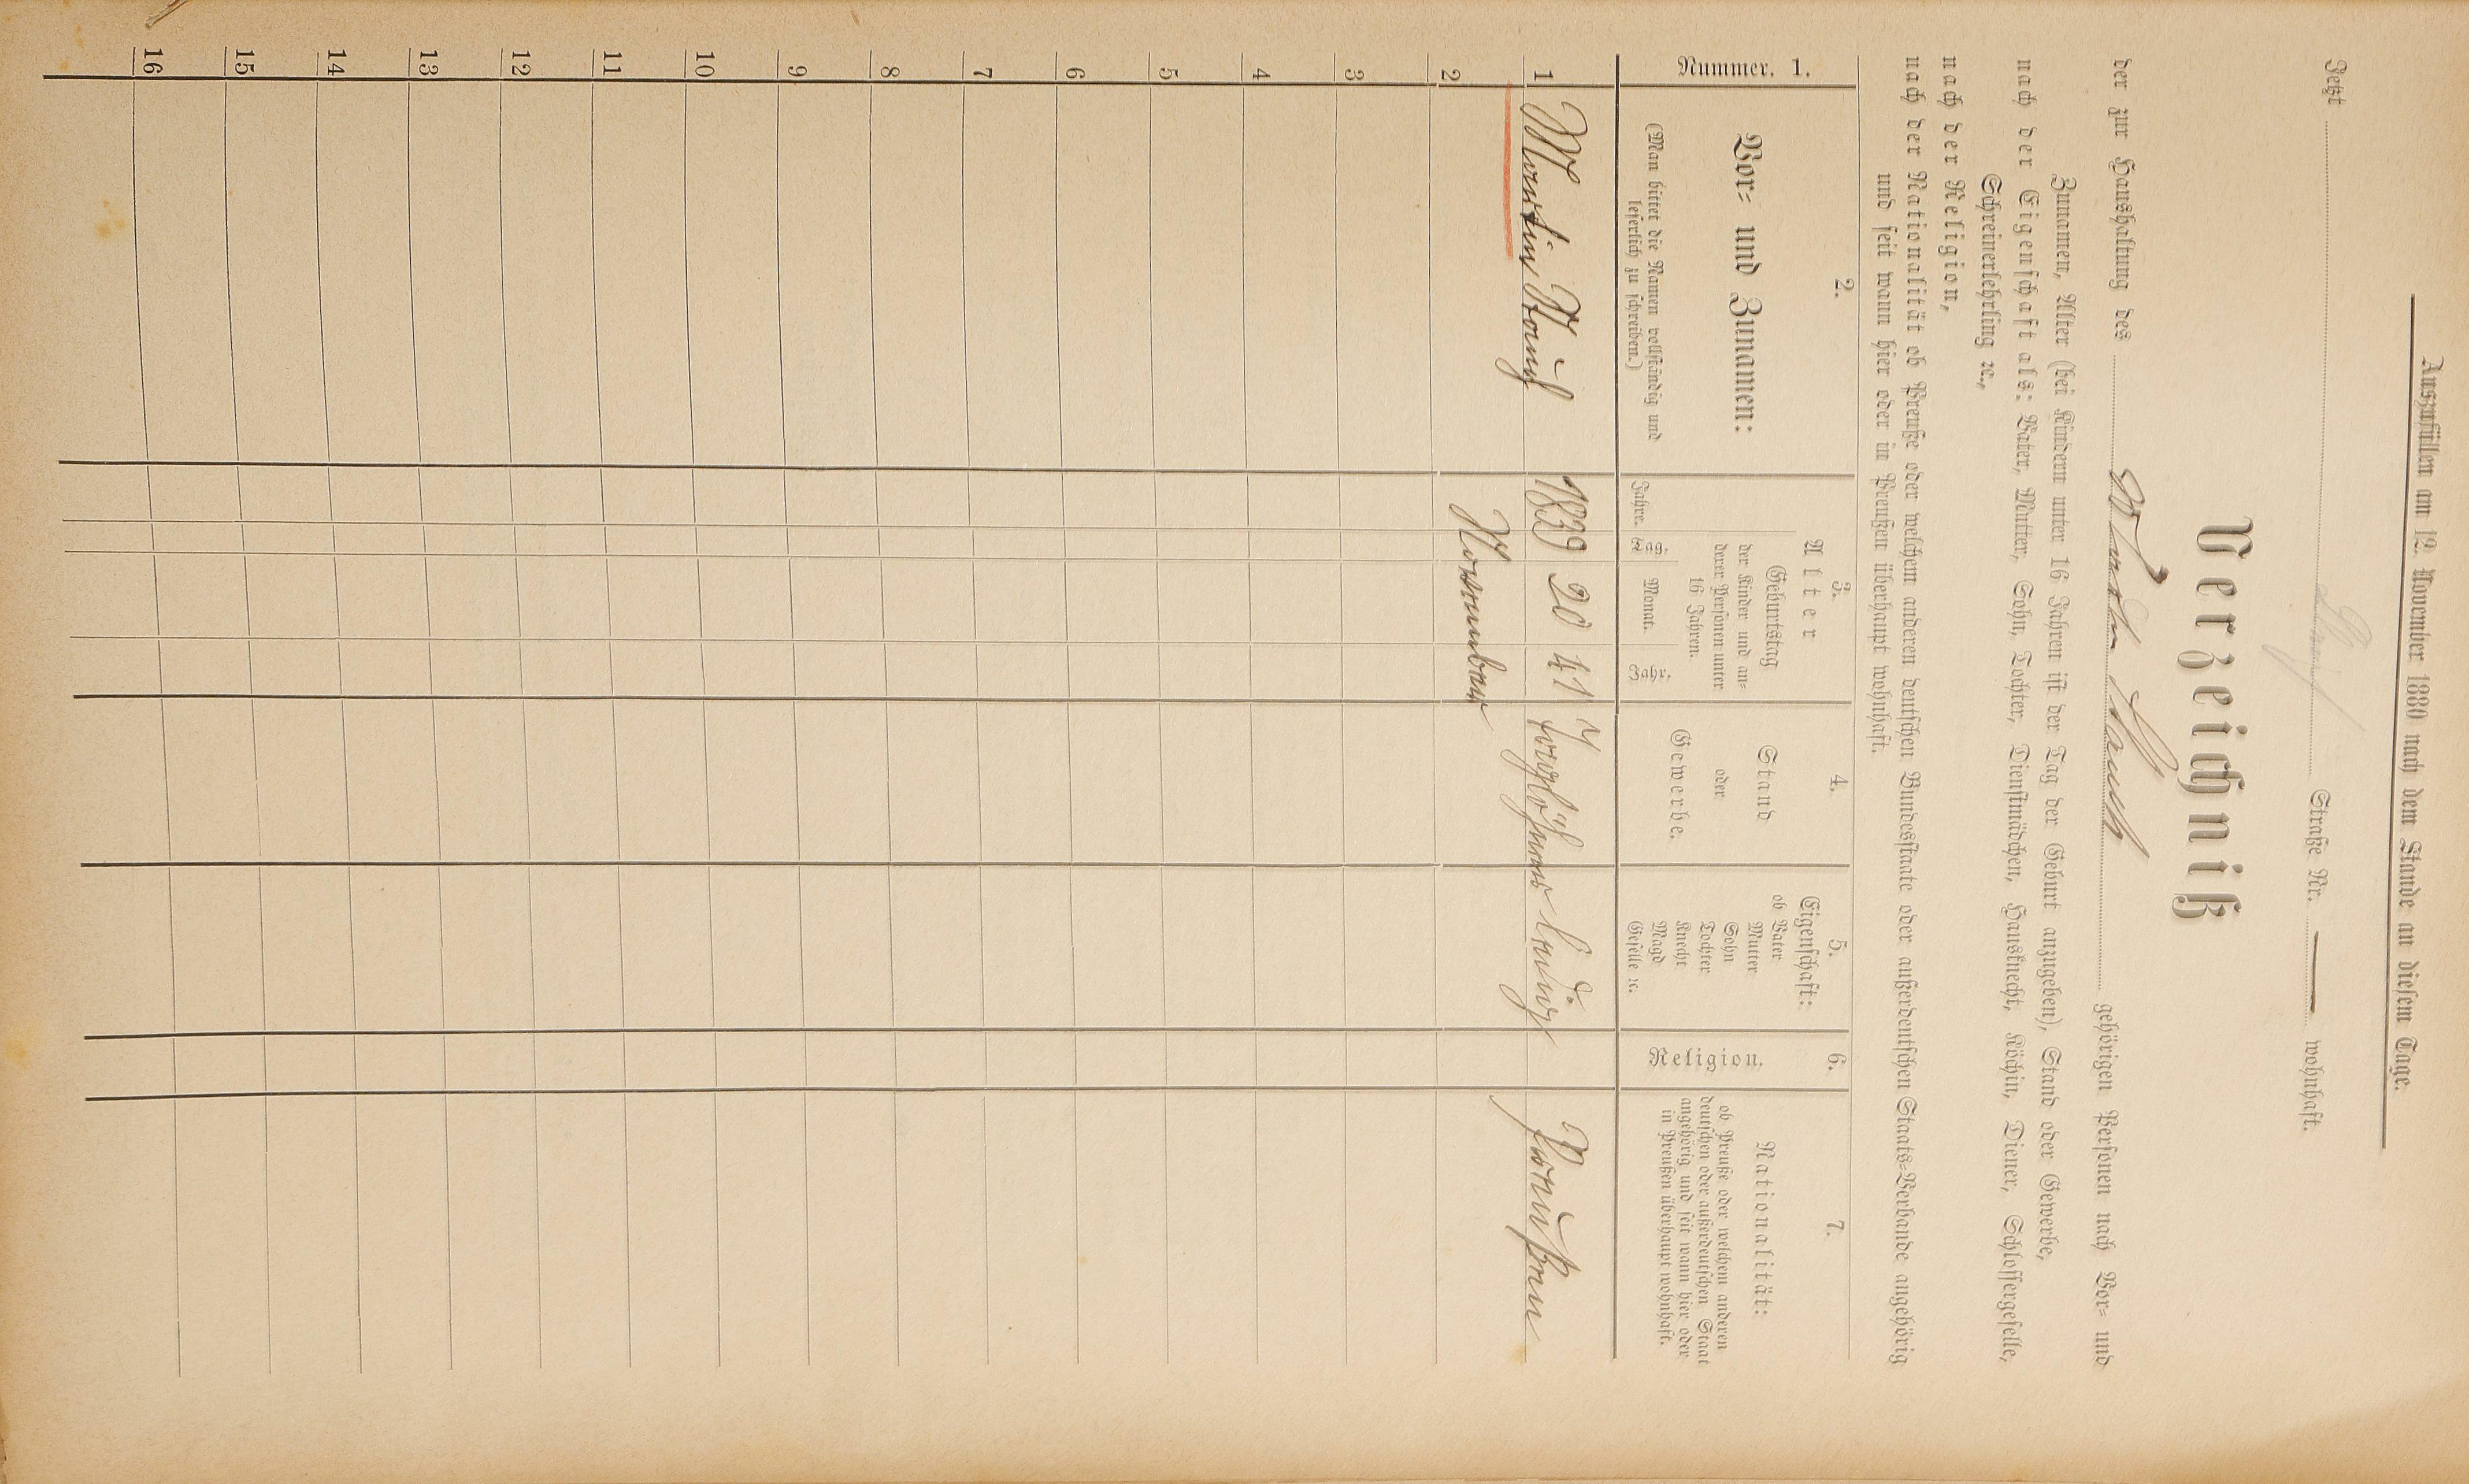 Auszufüllen am 12. November 1880 nach dem Stande an diesem Tage.
Jetzt Straße Nr. — wohnhaft.
Verzeichniß
der zur Haushaltung des gehörigen Personen nach Vor= und
Zunamen, Alter (bei Kindern unter 16 Jahren ist der Tag der Geburt anzugeben), Stand oder Gewerbe,
nach der Eigenschaft als: Vater, Mutter, Sohn, Tochter, Dienstmädchen, Hausknecht, Köchin, Diener, Schlossergeselle,
Schreinerlehrling ꝛc.,
nach der Religion,
nach der Nationalität ob Preuße oder welchem anderen deutschen Bundesstaate oder außerdeutschen Staats=Verbande angehörig
und seit wann hier oder in Preußen überhaupt wohnhaft.
Nummer. 1.
2.
Vor= und Zunamen:
(Man bittet die Namen vollständig und
leserlich zu schreiben.)
3.
Alter
Geburtstag
der Kinder und an=
derer Personen unter
16 Jahren.
Jahre. Tag. Monat. Jahr.
4.
Stand
oder
Gewerbe.
5.
Eigenschaft:
ob Vater
Mutter
Sohn
Tochter
Knecht
Magd
Geselle ꝛc.
6.
Religion.
7.
Nationalität:
ob Preuße oder welchem anderen
deutschen oder außerdeutschen Staat
angehörig und seit wann hier oder
in Preußen überhaupt wohnhaft.
1 Martin 1839 20 41 Taglöhner ledig Preußen
November
2
3
4
5
6
7
8
9
10
11
12
13
14
15
16